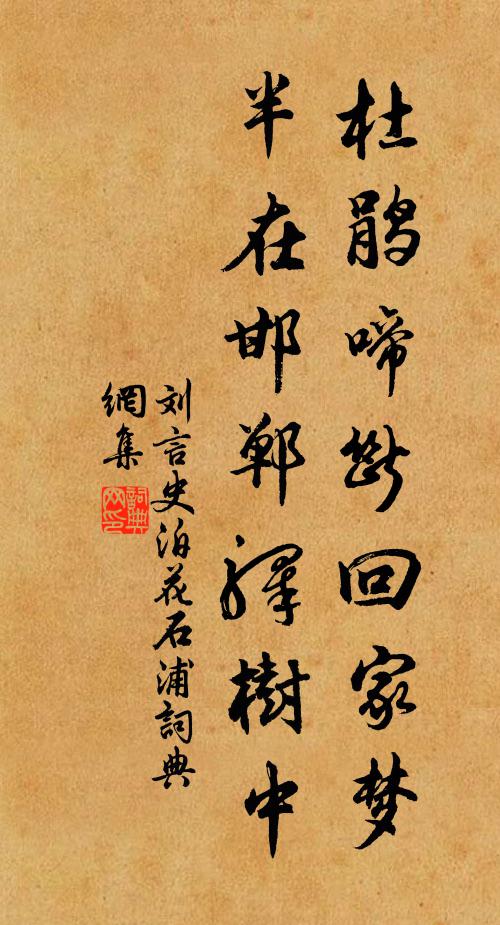 杜鹃啼断回家梦
半在邯郸驿樹中
刘言史泊花石浦詞典
網集
詞典
网印